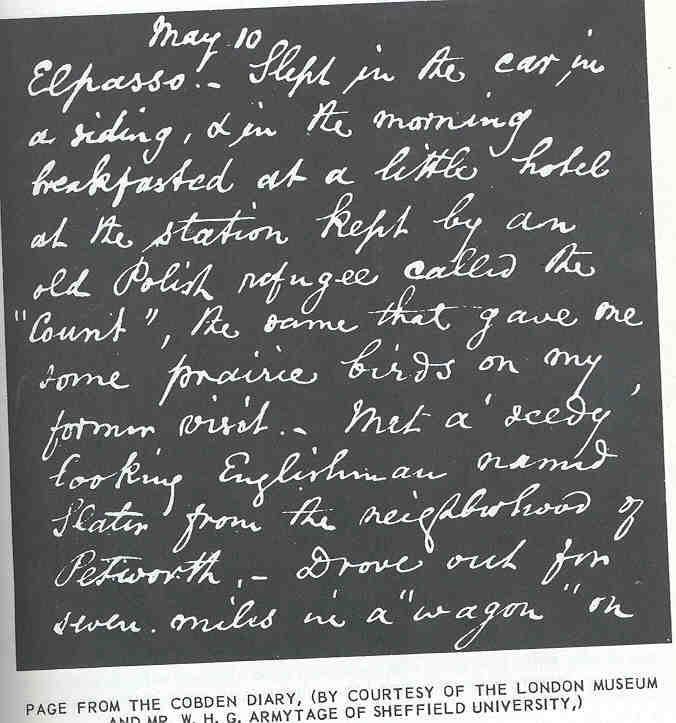 May 10
Elpasso.- Slept in the car, in
a siding, & in the morning
breakfasted at a little hotel
at the station kept by an
old Polish refugee called the
"Count", the same that gave me
some prairie birds on my
former visit.- Met a 'seedy'
looking Englishman named
Slater from the neighborhood of
Petworth.- Drove out for
seven miles in a "wagon" on
PAGE FROM THE COBDEN DIARY, (BY COURTESY OF THE LONDON MUSEUM
AND MR. W. H. G. ARMYTAGE OF SHEFFIELD UNIVERSITY,)